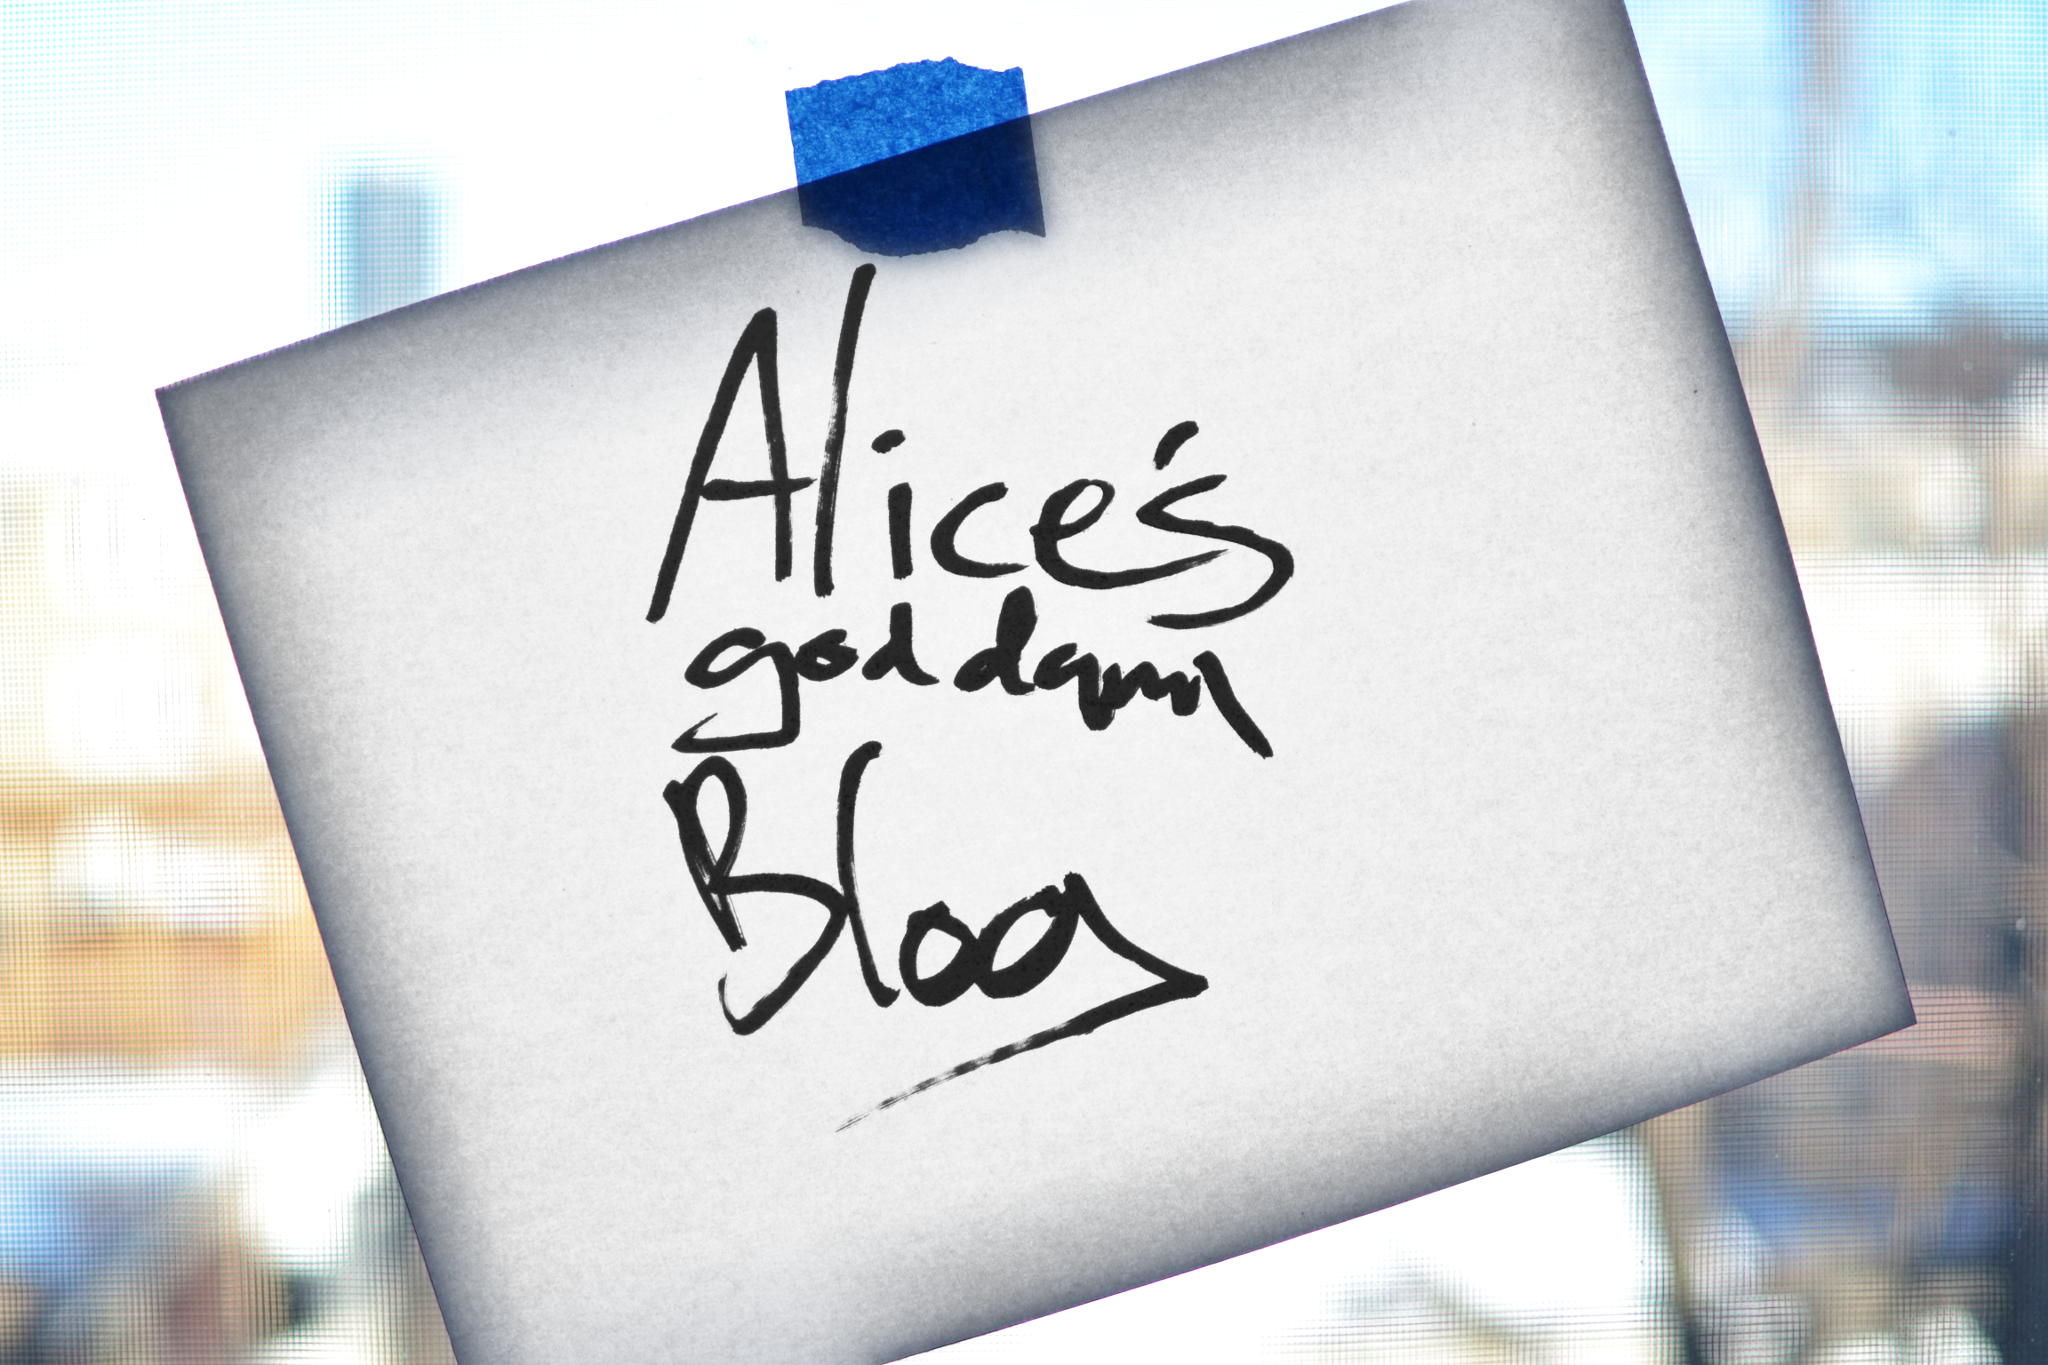 Alice's
goddamn
Blog